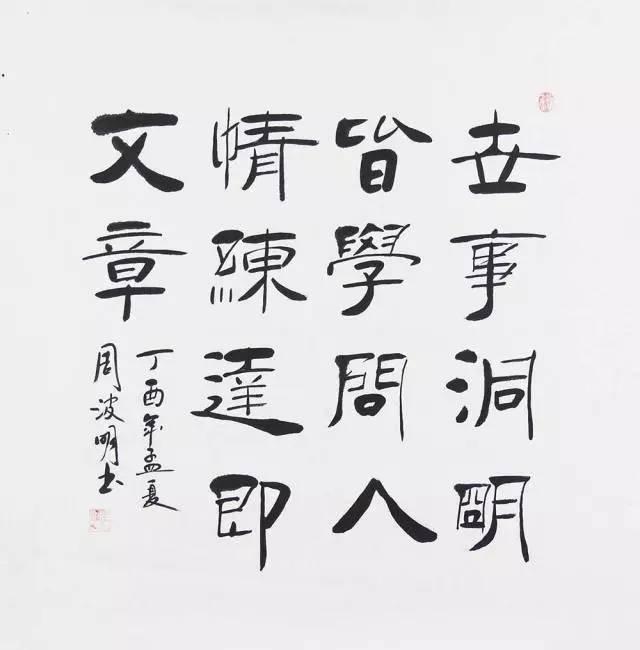 世事洞明
皆學問人
情練達即
文章
丁酉年孟夏
周波明书